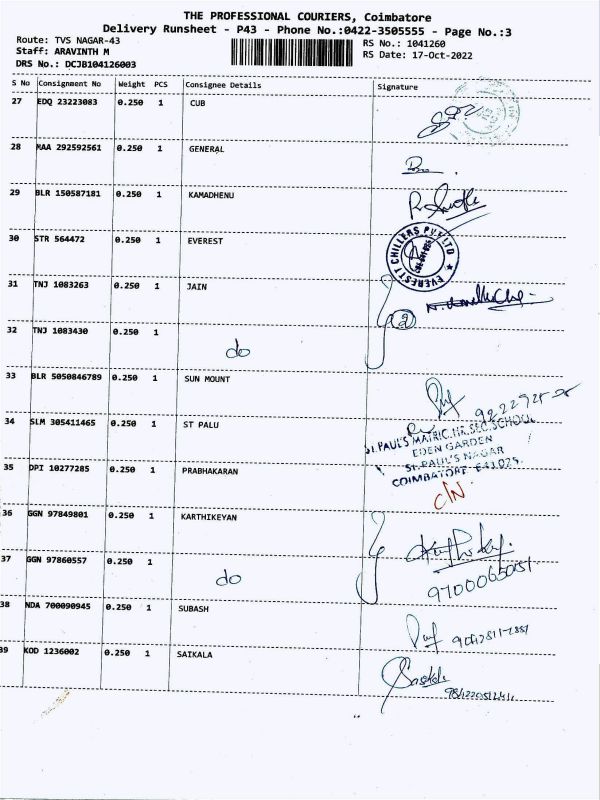 THE PROFESSIONAL COURIERS, Coimbatore
Delivery Runsheet - P43 - Phone No.:0422-3505555 - Page No.:3
Route: TVS NAGAR-43 RS No.: 1041260
Staff: ARAVINTH M RS Date: 17-Oct-2022
DRS No.: DCJB104126003
S No Consignment No Weight PCS Consignee Details Signature
27 EDQ 23223083 0.250 1 CUB
28 MAA 292592561 0.250 1 GENERAL
29 BLR 150587181 0.250 1 KAMADHENU
30 STR 564472 0.250 1 EVEREST
EVEREST CHILLERS PVT LTD
31 TNJ 1083263 0.250 1 JAIN
2
32 TNJ 1083430 0.250 1
do
33 BLR 5050846789 0.250 1 SUN MOUNT
34 SLM 305411465 0.250 1 ST PALU
ST.PAUL'S MATRIC.HR.SEC.SCHOOL
EDEN GARDEN
ST.PAUL'S NAGAR
COIMBATORE-641025.
35 DPI 10277285 0.250 1 PRABHAKARAN
C/N
36 GGN 97849801 0.250 1 KARTHIKEYAN
37 GGN 97860557 0.250 1
do
38 NDA 700090945 0.250 1 SUBASH
39 KOD 1236002 0.250 1 SAIKALA